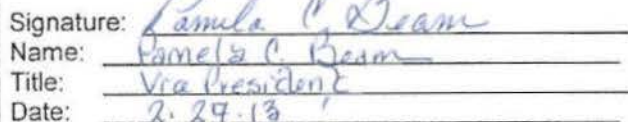 Signature: Pamela C. Beam
Name: Pamela C. Beam
Title: Vice President
Date: 2.29.13